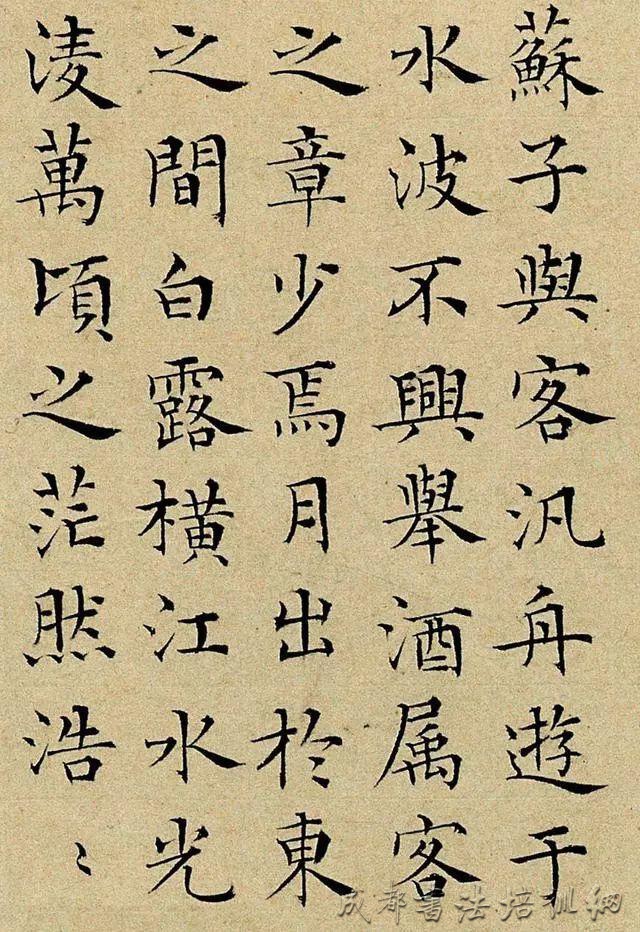 蘇子與客汎舟遊于
水波不興舉酒属客
之章少焉月出於東
之間白露橫江水光
淩萬頃之茫然浩〻
成都書法培训網